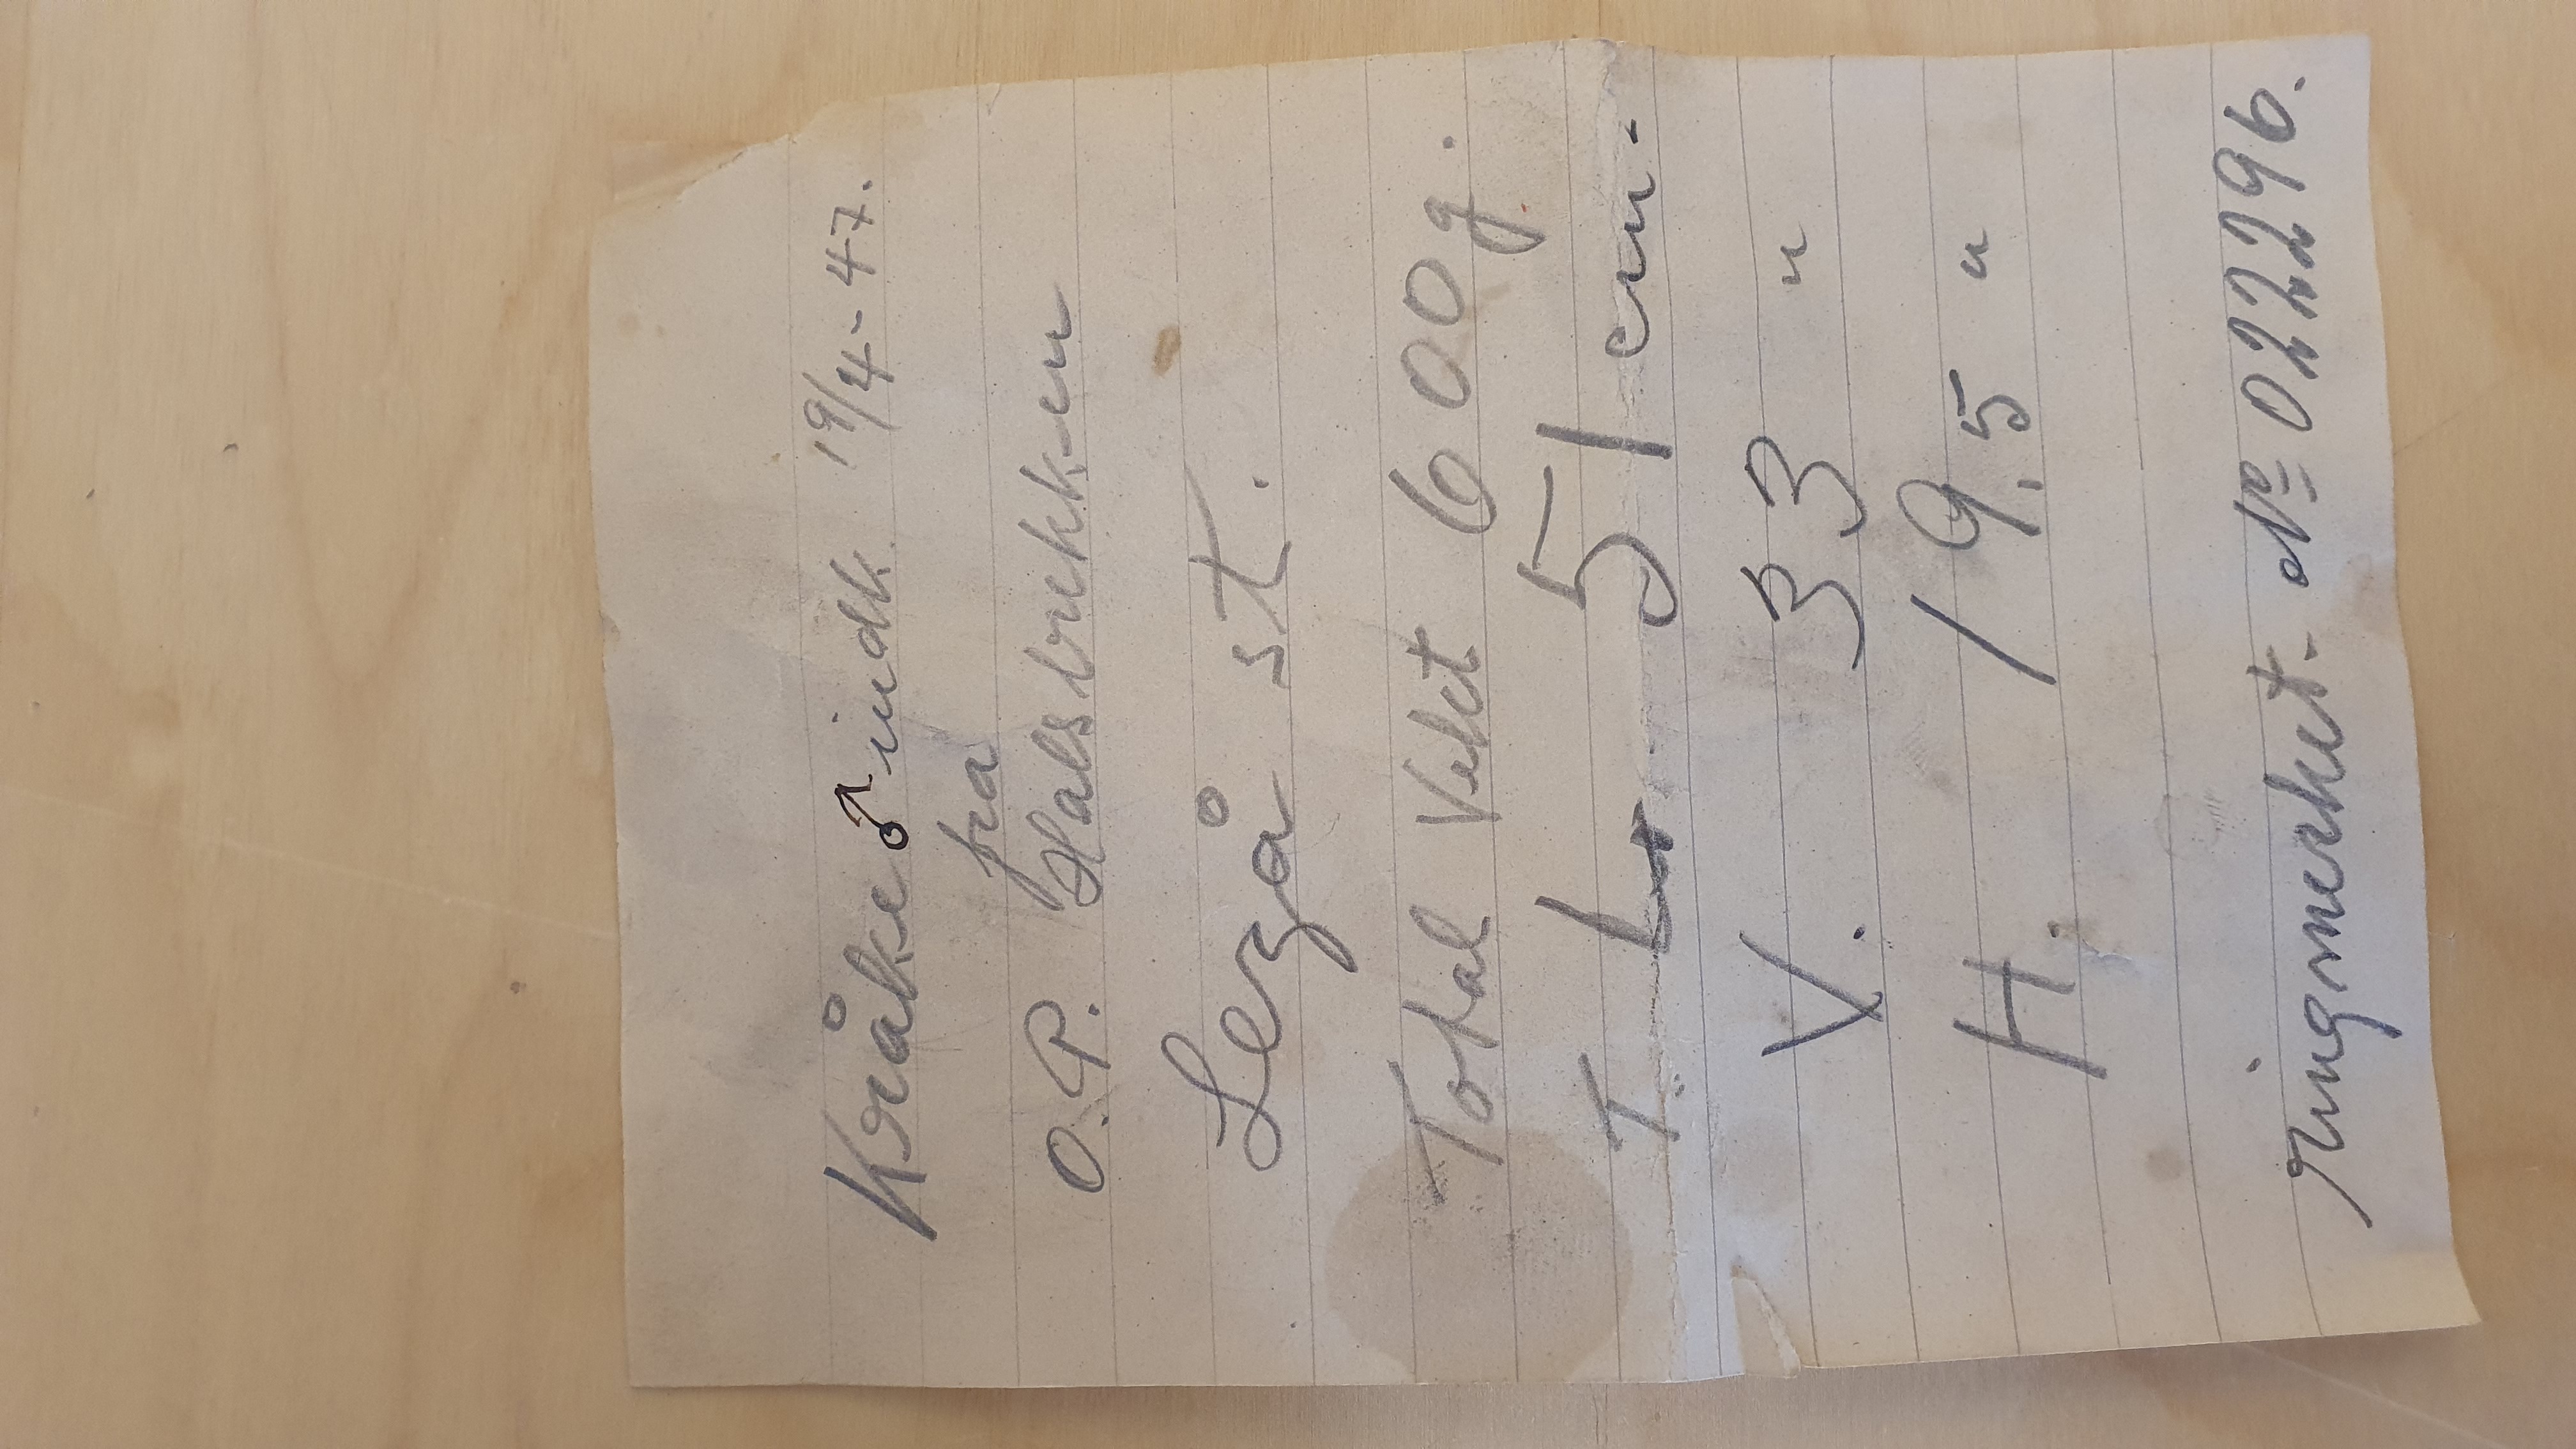 Kråke ♂ indk. 19/4-47.
fra
O.P. Halsbrekken
Legå st.
Total Vekt 600 g.
T. L. 51 cm.
V. 33 "
H. 19.5 "
ringmerket. No 022296.